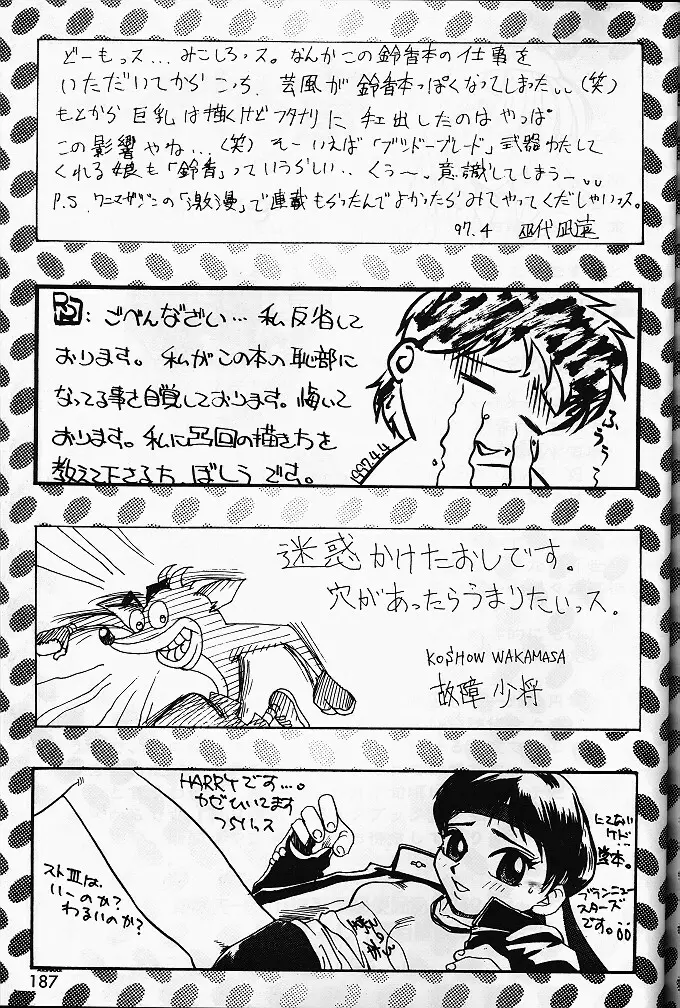 どーもっス...みこしろっス。なんかこの鈴香本の仕事を
いただいてからこっち、芸風が鈴香本っぽくなってしまった(笑)
もとから巨乳は描くけどフタナリに手出したのはやっぱ
この影響やね...(笑) そーいえば「ブシドーブレード」武器わたして
くれる娘も「鈴香」っていうらしい..くぅ〜、意識してしまうー
P.S ワニマガジンの「激漫」で連載もらったんでよかったらみてやってくだしゃいっス。
97.4
:ごべんなざい...私反省して
おります。私がこの本の恥部に
なってる事を自覚しております。悔いて
おります。私に凸凹の描き方を
教えて下さる方、ぼしうです。
1997.4.4
ふぅぅ〜
迷惑かけたおしです。
穴があったらうまりたいっス。
KOSHOW WAKAMASA
故障少将
HARRYです...。
かぜひいてます
つらいっス
にてない
けど
ブランニュー
スターズ
です。
ストIIIは
いーのか?
わるいのか?
187